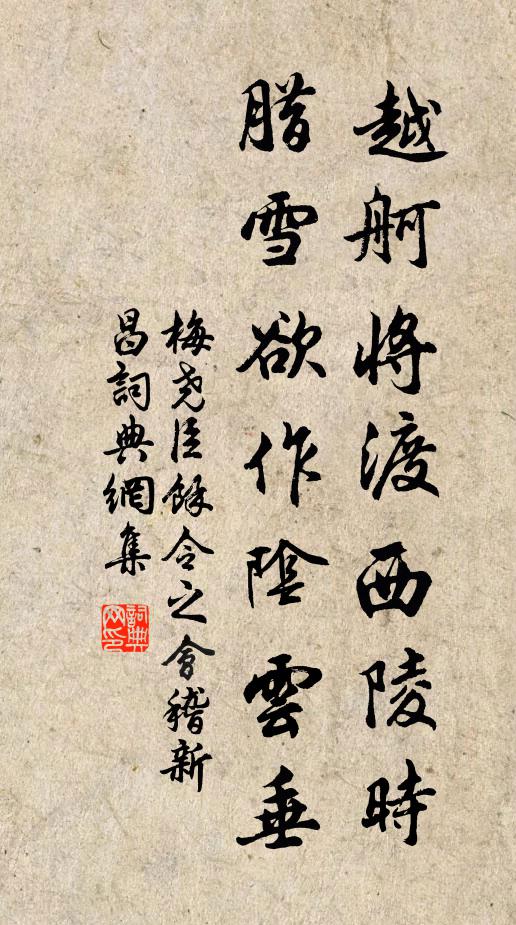 越舸將渡西陵時
腊雪欲作陰雲垂
梅堯臣餘令之會稽新
昌詞典網集
詞典网印